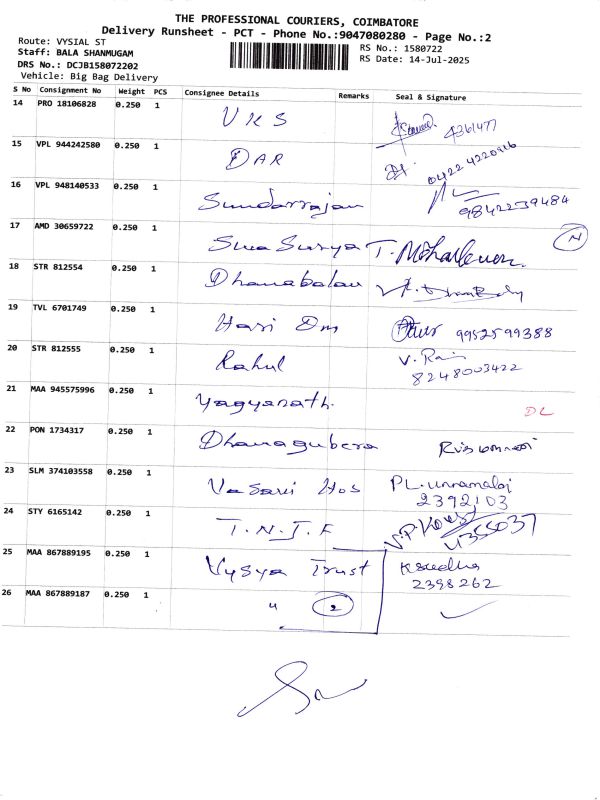 THE PROFESSIONAL COURIERS, COIMBATORE
Delivery Runsheet - PCT - Phone No.:9047080280 - Page No.:2
Route: VYSIAL ST
RS No.: 1580722
Staff: BALA SHANMUGAM
RS Date: 14-Jul-2025
DRS No.: DCJB158072202
Vehicle: Big Bag Delivery
S No Consignment No Weight PCS Consignee Details Remarks Seal & Signature
14 PRO 18106828 0.250 1 VKS 4361477
15 VPL 944242580 0.250 1 DAR 0422 4220916
16 VPL 948140533 0.250 1 Sundarrajan 9842239484
17 AMD 30659722 0.250 1 Siva Surya T. N
18 STR 812554 0.250 1 Dhanabalan
19 TVL 6701749 0.250 1 Hari Om 9952599388
20 STR 812555 0.250 1 Rahul V. 
8248003422
21 MAA 945575996 0.250 1 Yagyanath. DL
22 PON 1734317 0.250 1 Dhanagubera
23 SLM 374103558 0.250 1 Vasavi Hos PL. Unnamalai
2392103
24 STY 6165142 0.250 1 T.N.J.F 4355037
25 MAA 867889195 0.250 1 Vysya Trust K Sudha
2398262
26 MAA 867889187 0.250 1 " 2